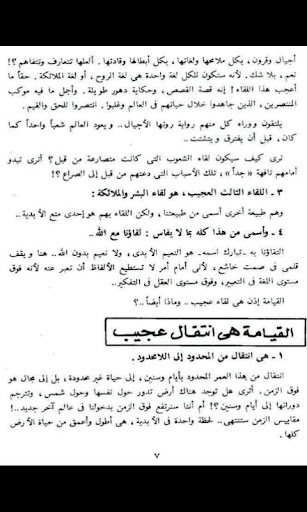 أجيال وقرون، بكل ملامحها ولغاتها، بكل أبطالها وقادتها. ألعلها تتعارف وتتفاهم ؟!
نعم، بلا شك. لأنه ستكون للكل لغة واحدة هى لغة الروح، أو لغة الملائكة. حقاً ما
أعجب هذا اللقاء ! إنه قصة القصص، وحكاية دهور طويلة. وأجمل ما فيه موكب
المنتصرين، الذين جاهدوا خلال حياتهم فى العالم وغلبوا. انتصروا للحق والقيم.
يلتقون ووراء كل منهم رواية روتها الأجيال.. ويعود العالم شعباً واحداً كما
كان، قبل أن يفترق ويتشتت..
ترى كيف سيكون لقاء الشعوب التى كانت متصارعة من قبل ؟ أترى تبدو
أمامهم تافهة «جداً»، تلك الأسباب التى دعتهم من قبل إلى الصراع ؟!
٣ ـ اللقاء الثالث العجيب، هو لقاء البشر والملائكة:
وهم طبيعة أخرى أسمى من طبيعتنا، ولكن اللقاء بهم هو إحدى متع الأبدية..
٤ ـ وأسمى من هذا كله بما لا يقاس : لقاؤنا مع الله..
التقاؤنا به ـ تبارك اسمه ـ هو النعيم الأبدى، ولا نعيم بدون الله.. هنا و يقف
قلمى فى صمت خاشع، لأنى أمام أمر لا تستطيع الألفاظ أن تعبر عنه لأنه فوق
مستوى اللغة فى التعبير، وفوق مستوى العقل فى التفكير..
القيامة إذن هى لقاء عجيب.. وماذا أيضاً..؟
القيامة هى انتقال عجيب
١ ـ هى انتقال من المحدود إلى اللامحدود.
انتقال من هذا العمر المحدود بأيام وسنين، إلى حياة غير محدودة، بل إلى مجال هو
فوق الزمن. أترى هل توجد هناك أرض تدور حول نفسها وحول شمس، وتترجم
دورانها إلى أيام وسنين ؟! أم أننا سنرتفع فوق الزمن بدخولنا فى عالم آخر جديد..!
مقاييس الزمن ستنتهى.. لحظة واحدة فى الأبدية، هى أطول وأعمق من حياة الأرض
كلها.
٧